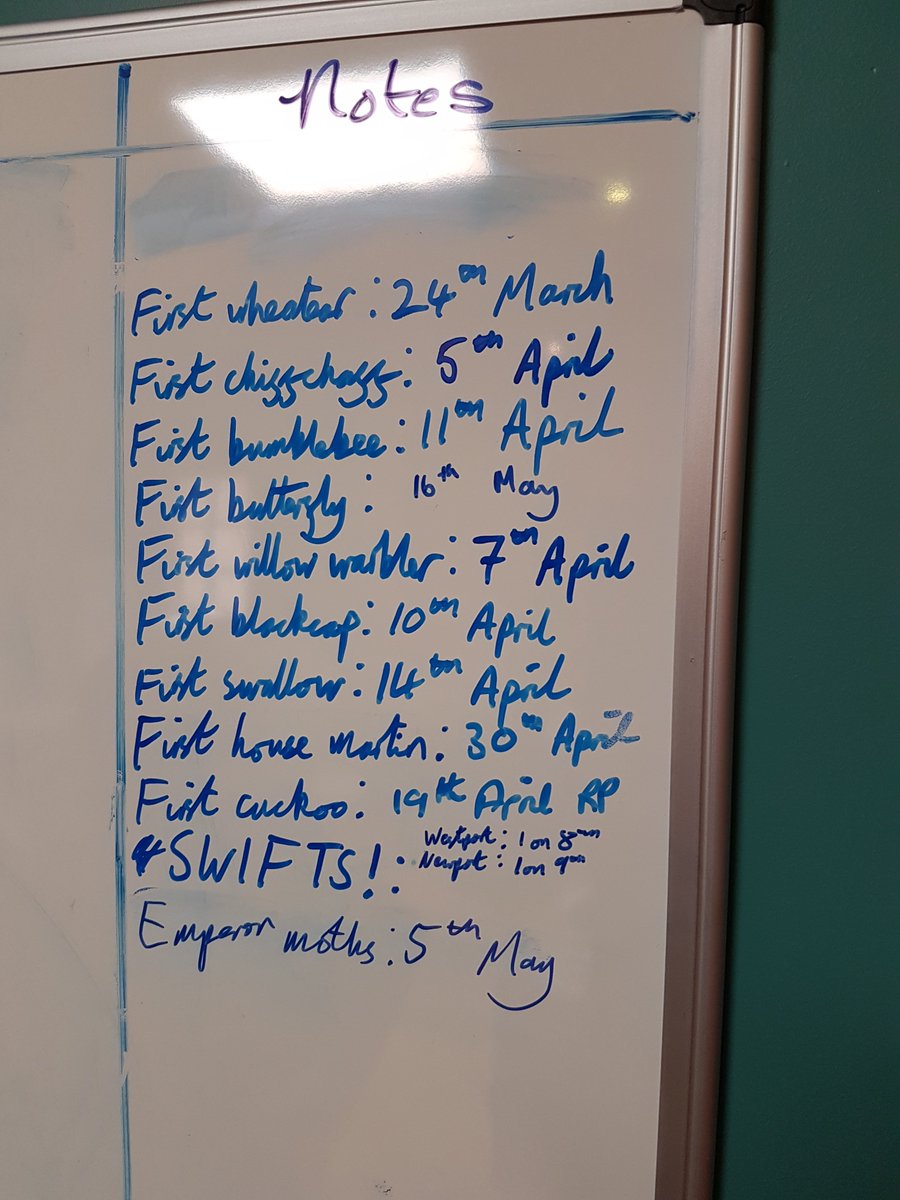 Notes
First wheatear: 24th March
First chiffchaff: 5th April
First bumblebee: 11th April
First butterfly: 16th May
First willow warbler: 7th April
First blackcap: 10th April
First swallow: 14th April
First house martin: 30th April
First cuckoo: 19th April RP
SWIFTS!: Westport: 1 on 8th
Newport: 1 on 9th
Emperor moths: 5th May